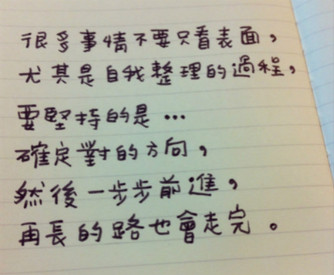 很多事情不要只看表面，
尤其是自我整理的過程，
要堅持的是…
確定對的方向，
然後一步步前進，
再長的路也會走完。